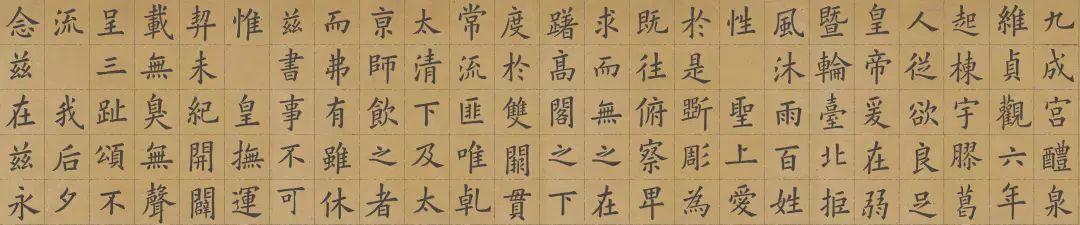 九成宮醴泉
維貞觀六年
起棟宇膠葛
人從欲良足
皇帝爰在弱
暨輪臺北拒
風沐雨百姓
性 聖上愛
於是斲彫為
既往俯察卑
求而無之在
躇髙閣之下
度於雙闕貫
常流匪唯乹
太清下及太
亰師飲之者
而弗有雖休
兹書事不可
惟 皇撫運
契未紀開闢
載無臭無聲
呈三趾頌不
流 我后夕
念兹在兹永